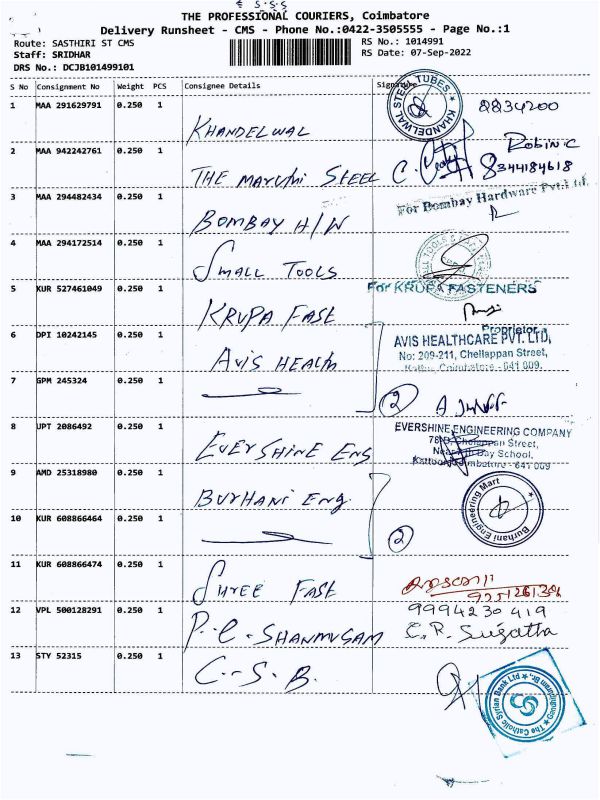 S.S.S
THE PROFESSIONAL COURIERS, Coimbatore
Delivery Runsheet - CMS - Phone No.:0422-3505555 - Page No.:1
Route: SASTHIRI ST CMS
RS No.: 1014991
Staff: SRIDHAR
RS Date: 07-Sep-2022
DRS No.: DCJB101499101
S No Consignment No Weight PCS Consignee Details Signature
1 MAA 291629791 0.250 1 KHANDELWAL KHANDELWAL STEEL TUBES 8834200
2 MAA 942242761 0.250 1 THE MARUTHI STEEL ROBIN C 8344184618
3 MAA 294482434 0.250 1 BOMBAY H/W For Bombay Hardware Pvt.Ltd.
4 MAA 294172514 0.250 1 SMALL TOOLS
5 KUR 527461049 0.250 1 KRUPA FAST For KRUPA FASTENERS
Proprietor
6 DPI 10242145 0.250 1 AVIS HEALTH AVIS HEALTHCARE PVT. LTD,
No: 209-211, Chellappan Street,
Coimbatore - 641 009.
7 GPM 245324 0.250 1 2
8 UPT 2086492 0.250 1 EVERSHINE ENG EVERSHINE ENGINEERING COMPANY
Street,
Day School,
Kattoor, Coimbatore - 641 009
9 AMD 25318980 0.250 1 BURHANI ENG. Burhani Engineering Mart
10 KUR 608866464 0.250 1 2
11 KUR 608866474 0.250 1 SHREE FAST
12 VPL 500128291 0.250 1 P.C. SHANMUGAM 9994230419
C.R. Sugatha
13 STY 52315 0.250 1 C.S.B. The Catholic Syrian Bank Ltd